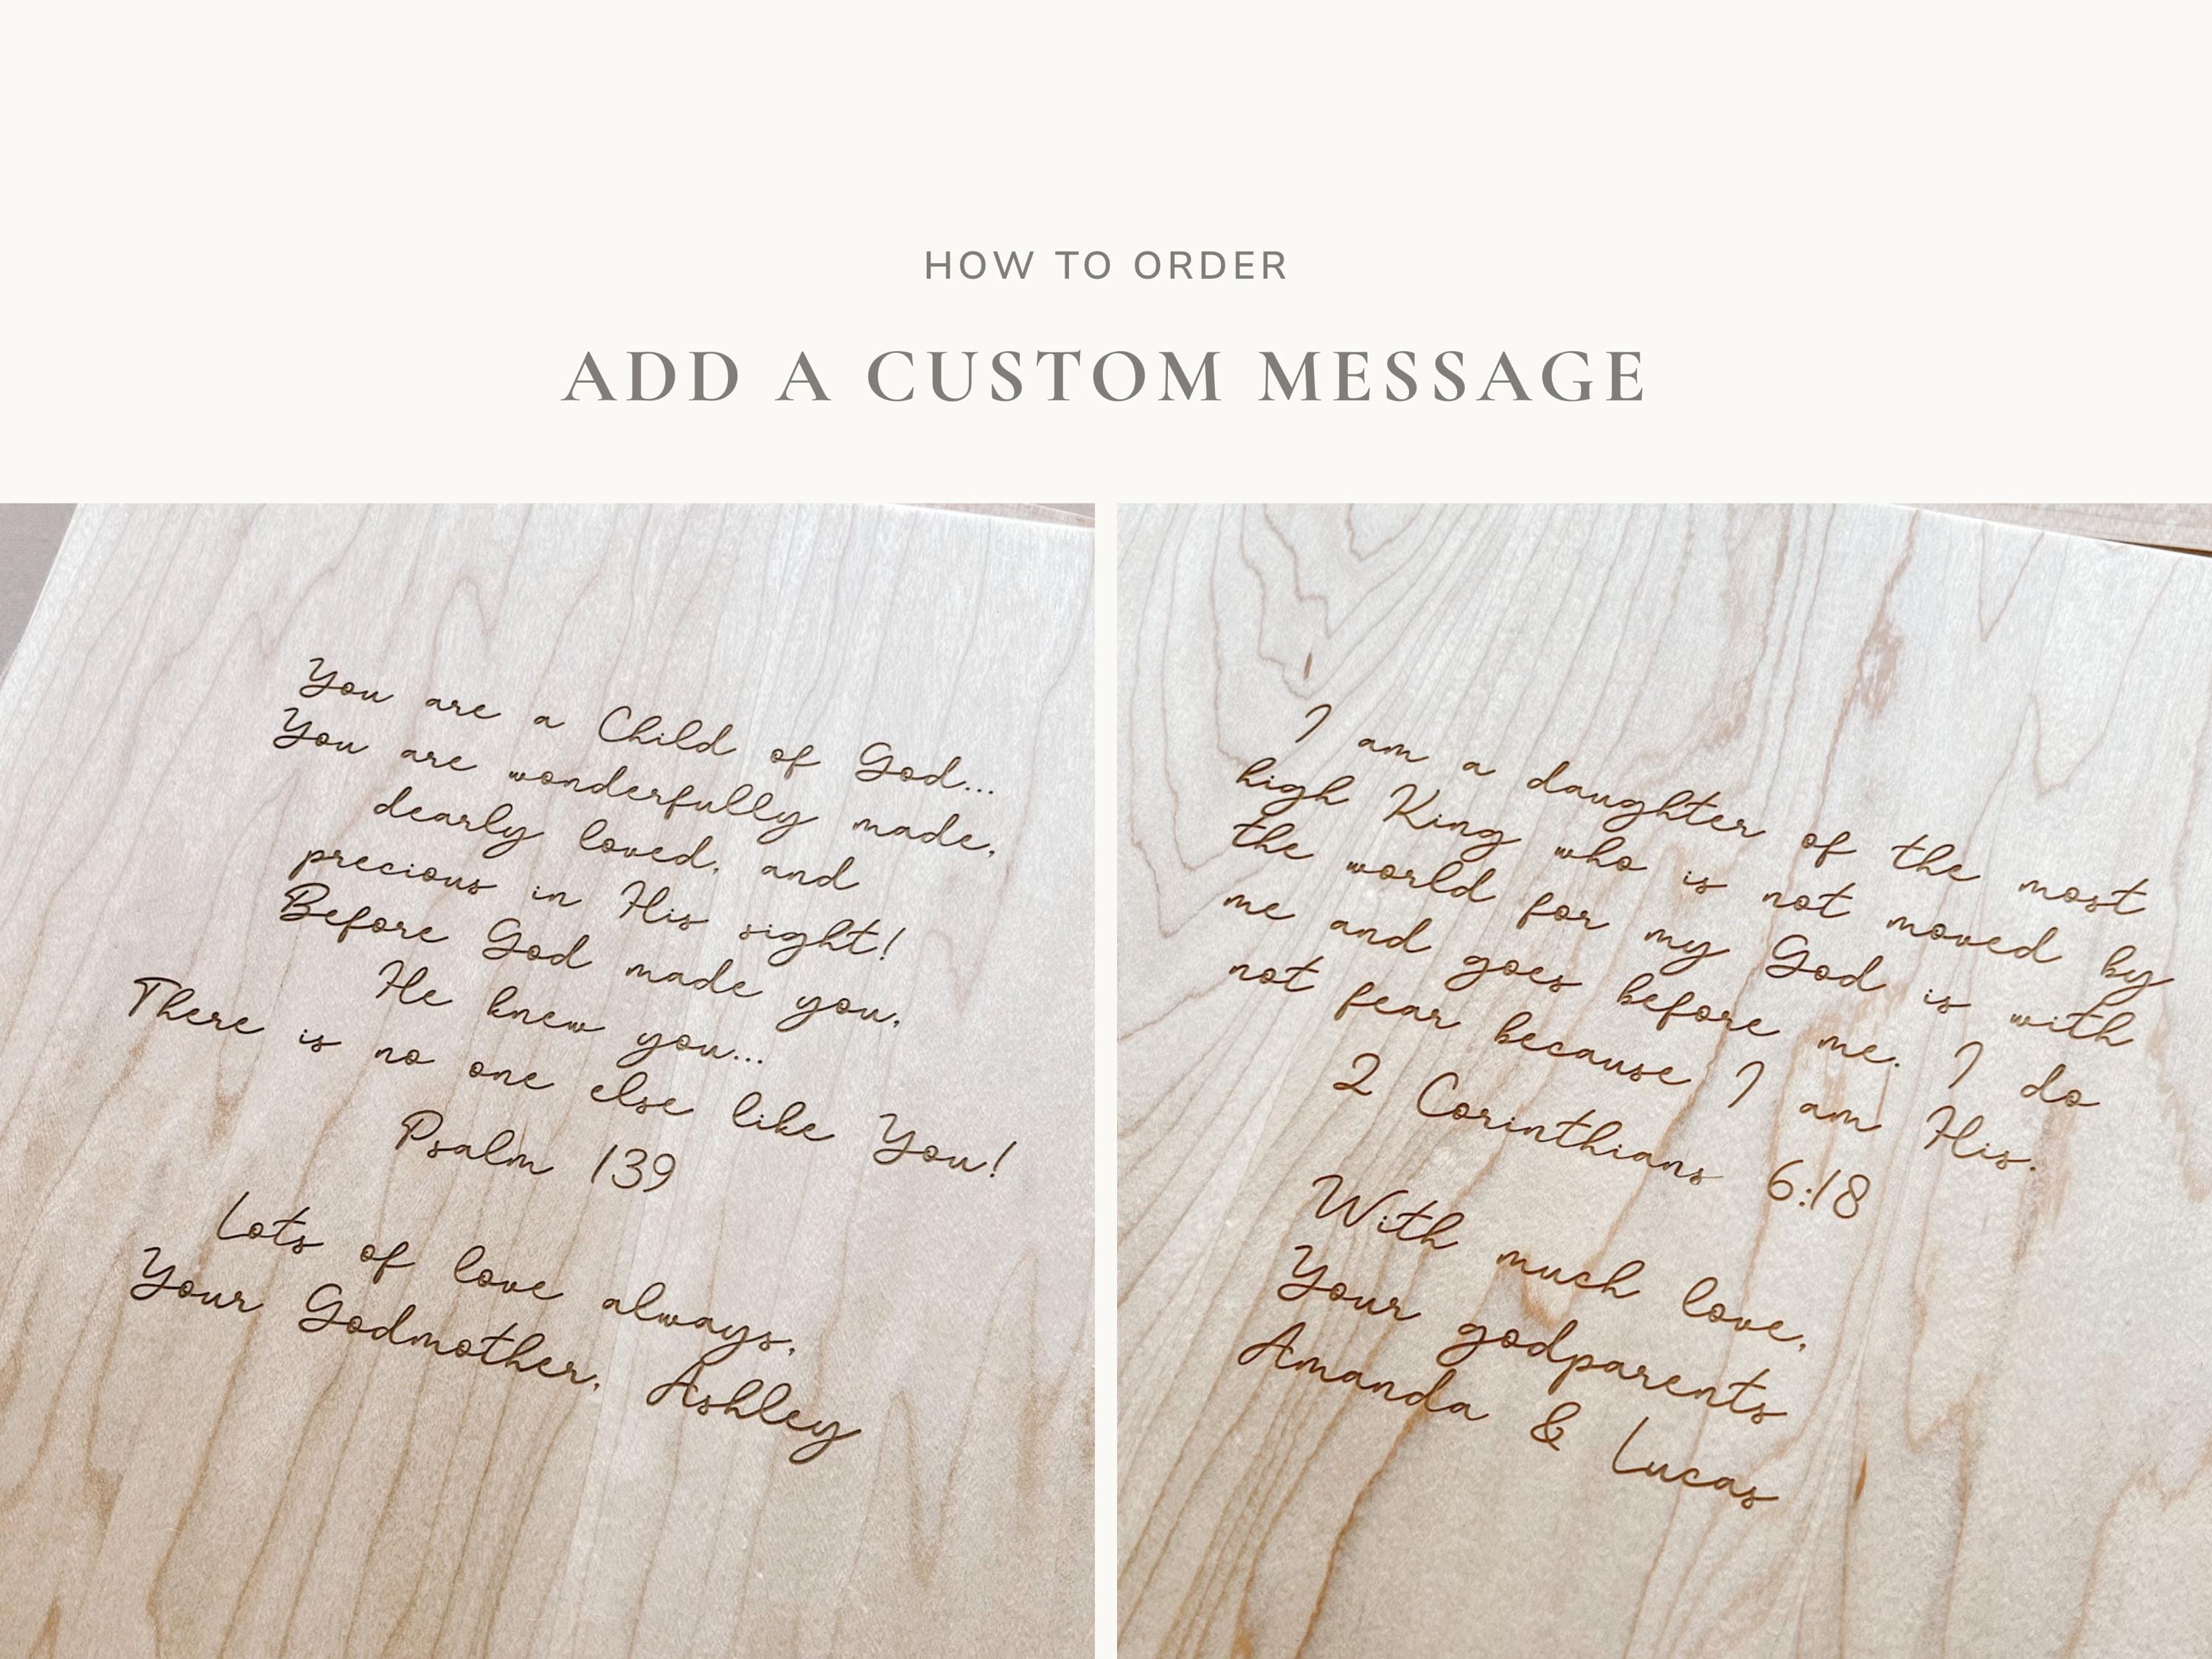 HOW TO ORDER
ADD A CUSTOM MESSAGE
You are a Child of God...
You are wonderfully made,
dearly loved, and
precious in His sight!
Before God made you,
He knew you...
There is no one else like You!
Psalm 139
Lots of love always,
Your Godmother, Ashley
I am a daughter of the most
high King who is not moved by
the world for my God is with
me and goes before me. I do
not fear because I am His.
2 Corinthians 6:18
With much love,
Your godparents
Amanda & Lucas